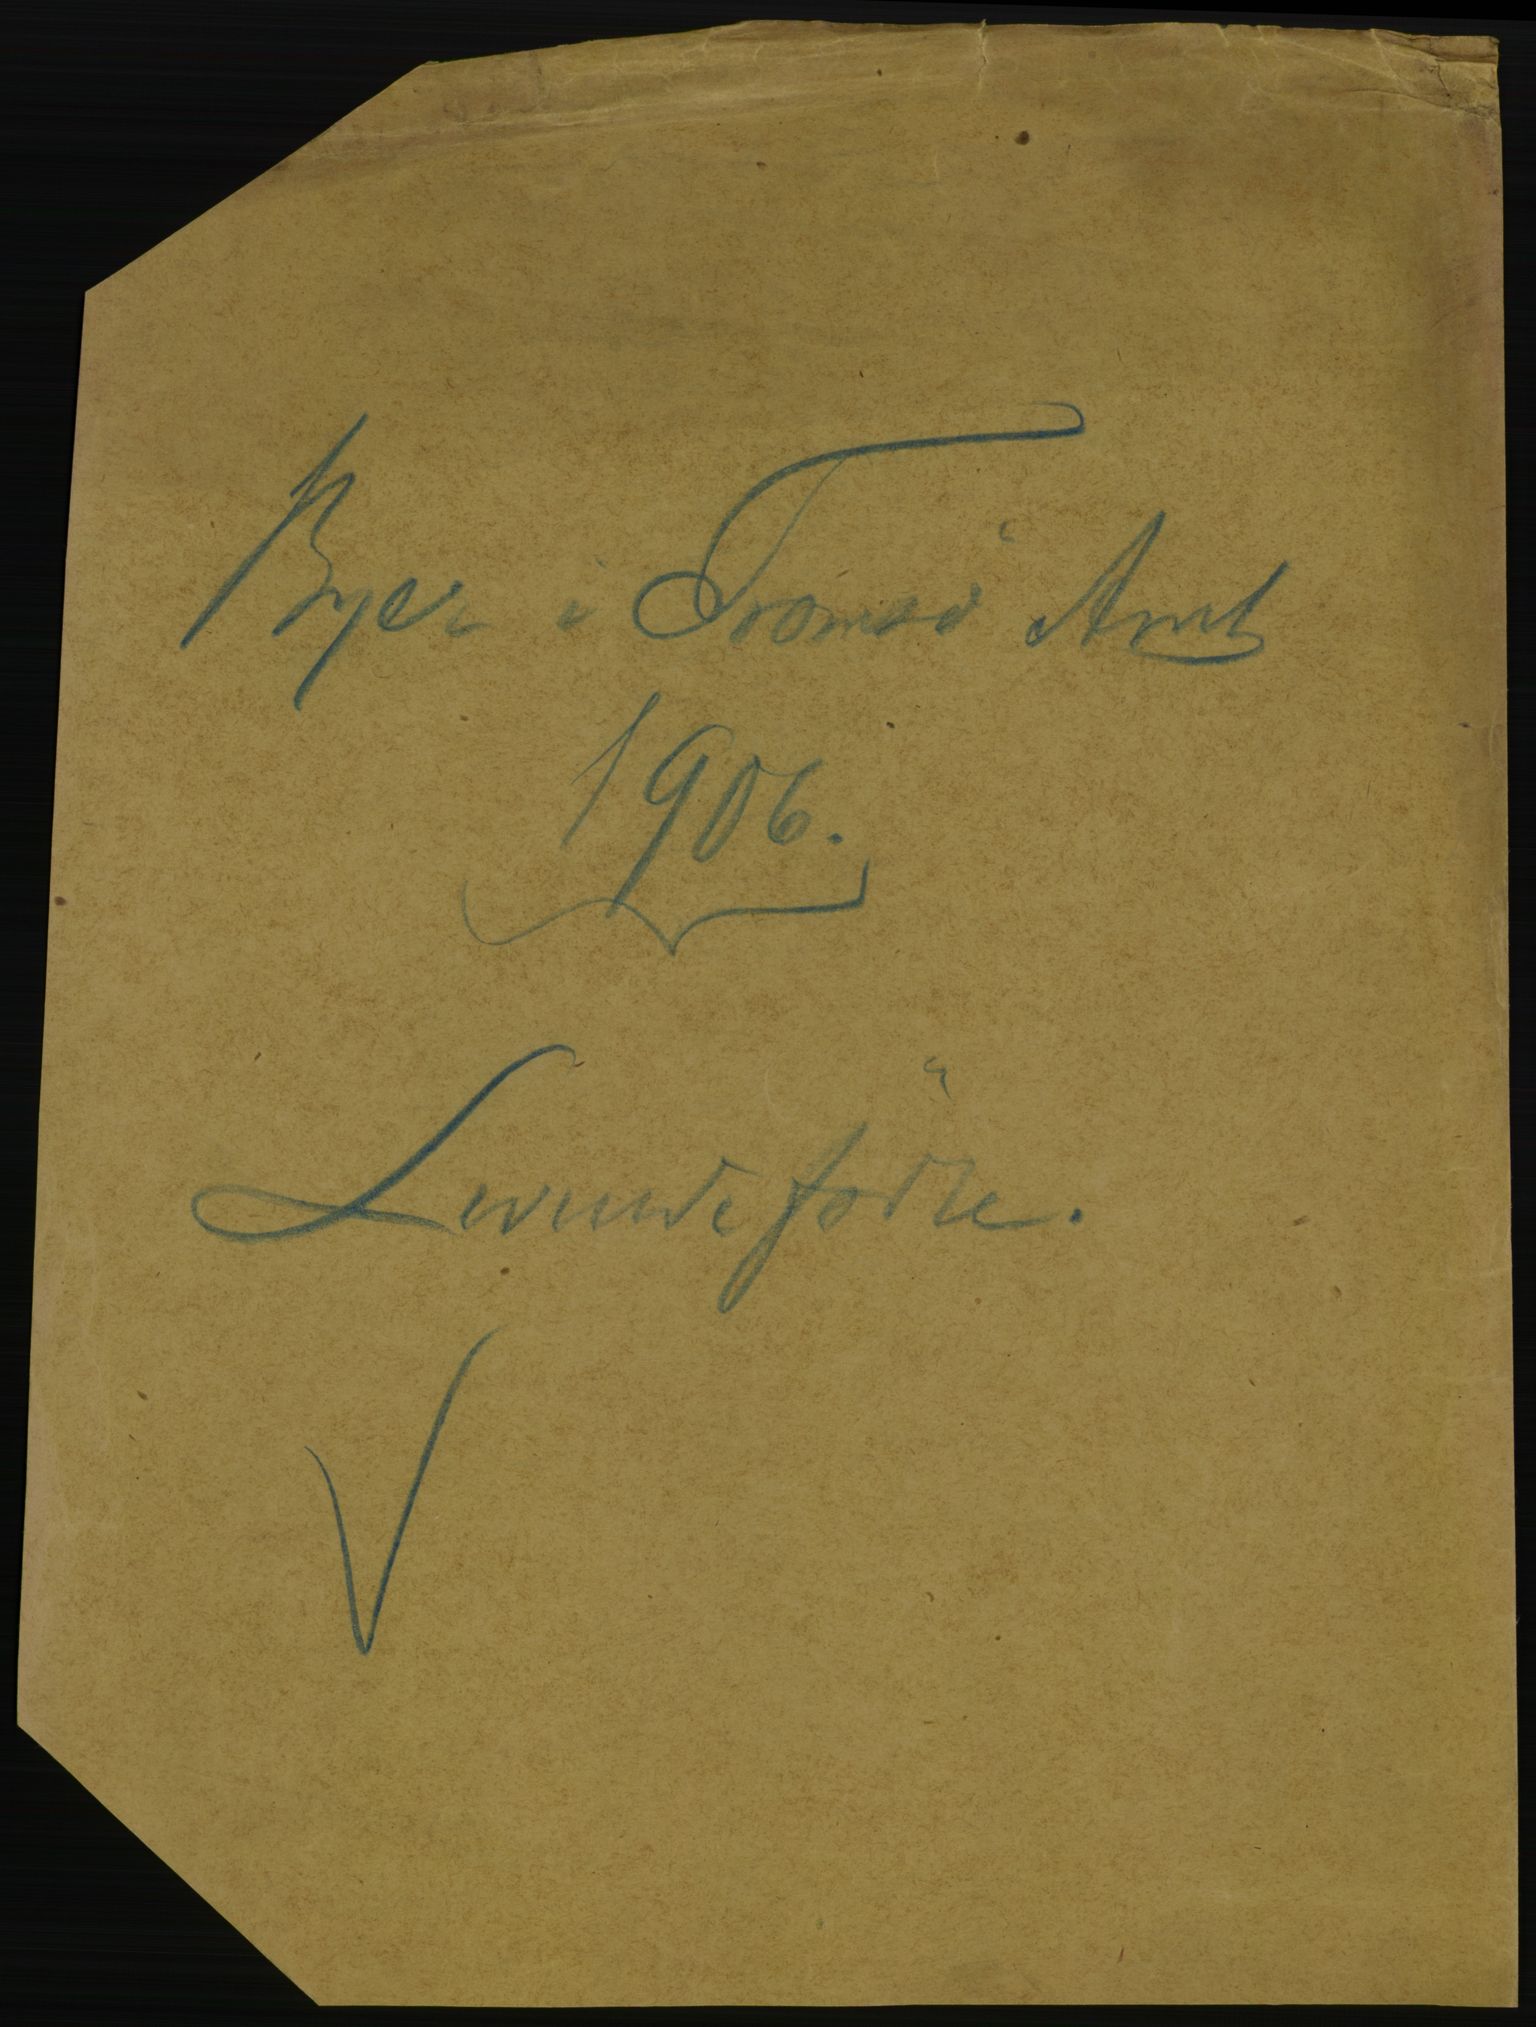 Byer i Tromsö Amt
1906.
Levendefödte.